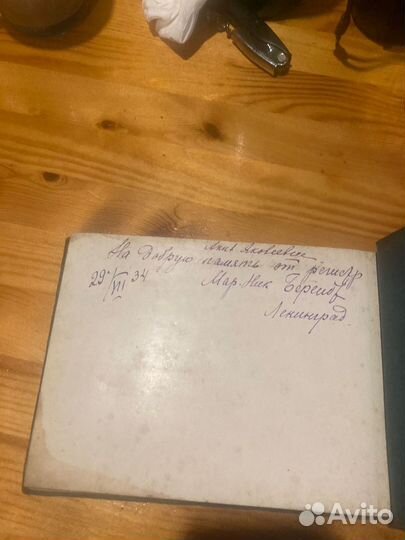 Анне Яковлевне
На добрую память от регистр
29/VII 34 Мар. Ник
Ленинград.
Avito